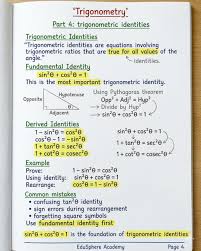 "Trigonometry"
Part 4: trigonometric identities
Trigonometric Identities
"Trigonometric identities are equations involving
trigonometric ratios that are true for all values of
the angle."
identities.
Fundamental Identity
sin²θ + cos²θ = 1
This is the most important trigonometric identity.
Using Pythagoras theorem
Opp² + Adj² = Hyp²
Divide by Hyp²
sin²θ + cos²θ = 1
Opposite
Hypotenuse
θ
Adjacent
Derived Identities
1 − sin²θ = cos²θ
1 − cos²θ = sin²θ
1 + tan²θ = sec²θ
1 + cot²θ = csc²θ
Example
Prove: 1 − sin²θ = cos²θ
Using identity: sin²θ + cos²θ = 1
Rearrange: cos²θ = 1 − sin²θ
Common mistakes
• confusing tan²θ identity
• sign errors during rearrangement
• forgetting square symbols
• Use fundamental identity first
sin²θ + cos²θ = 1 is the foundation of trigonometric identities
EduSphere Academy
Page 4